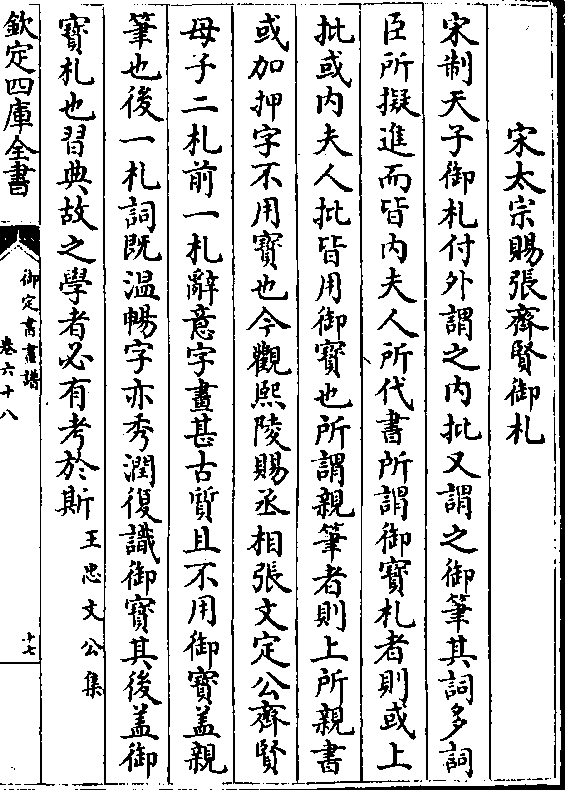 宋太宗賜張齊賢御札
宋制天子御札付外謂之内批又謂之御筆其詞多詞
臣所擬進而皆内夫人所代書所謂御寳札者則或上
批或内夫人批皆用御寳也所謂親筆者則上所親書
或加押字不用寳也今觀熙陵賜丞相張文定公齊賢
母子二札前一札辭意字畫甚古質且不用御寳蓋親
筆也後一札詞既温暢字亦秀潤復識御寳其後盖御
寳札也習典故之學者必有考於斯 王忠文公集
欽定四庫全書
御定書畫譜
卷六十八
十七